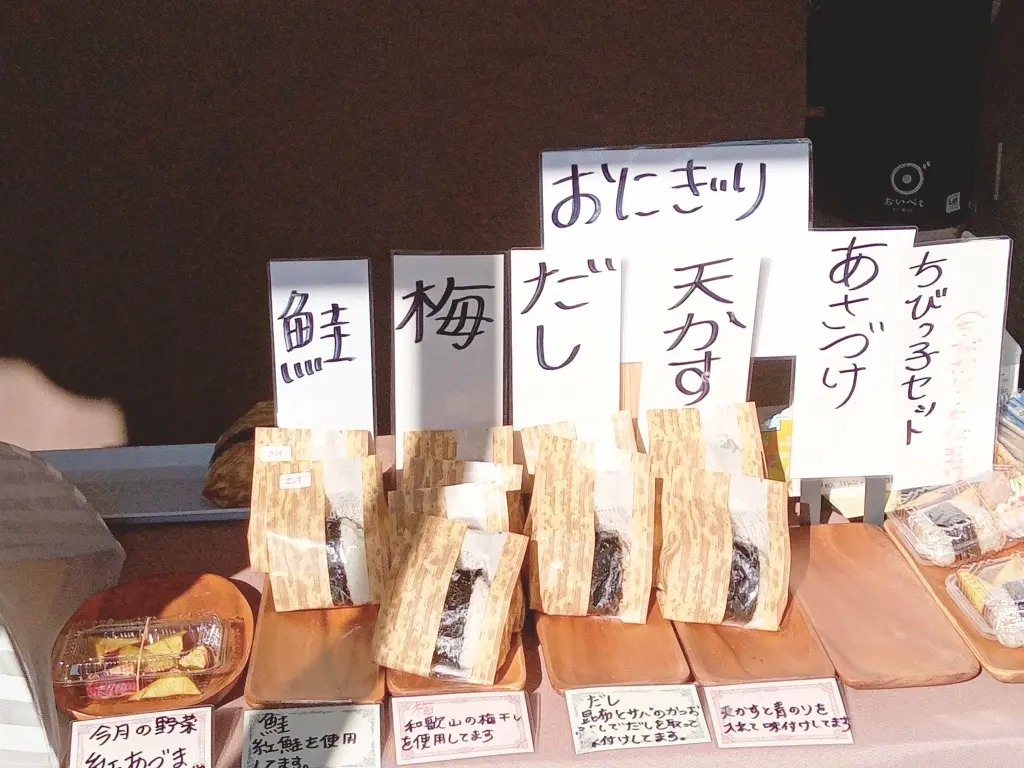 おにぎり
鮭
梅
だし
天かす
あさづけ
ちびっ子セット
今月の野菜
紅あづま
鮭
紅鮭を使用
してます。
梅
和歌山の梅干し
を使用してます
だし
昆布とサバのかつお
ぶしでだしを取って
味付けしてます。
天かすと青のりを
入れて味付けしてます